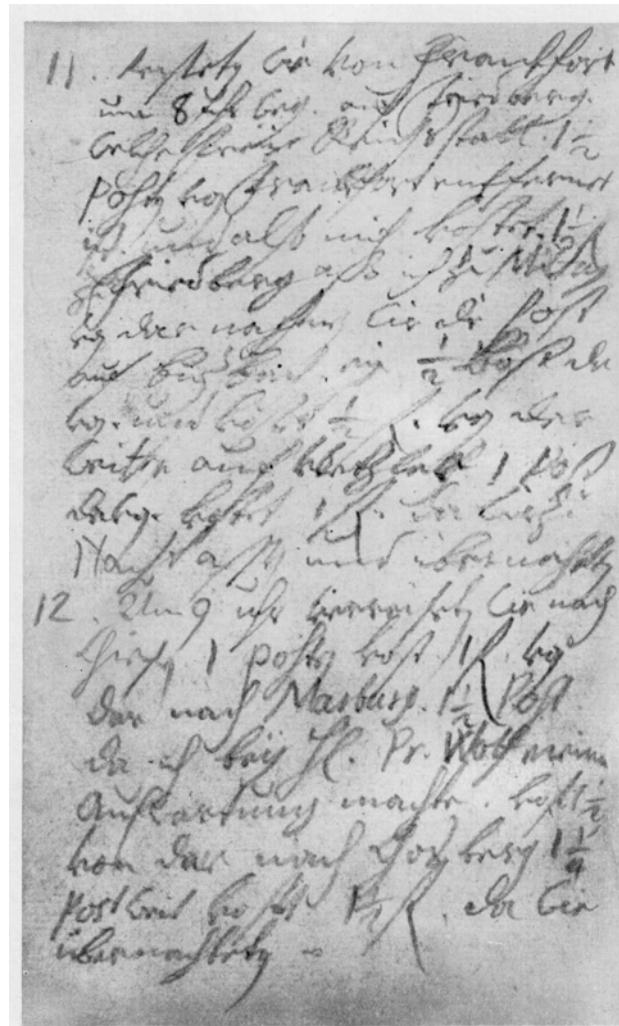 11. reiseten wir von Franckfort
um 8 Uhr weg. auf Friedberg.
welches eine Reichsstatt. 1 1/2
posten von Franckfort entfernet
ist. und alss mich kostet. 1 1/2
zu Friedberg ass ich zu Mittag
von dar nahmen wir die Post
auf butzbach. ein 1/2 Post da
von. und kostet 1/2 fl. von dar
weiter auf Wetzlar 1 Post
davon kostet 1 fl. da wir zu
Nacht assen und übernachteten
12. Um 9 uhr verreiseten wir nach
1 posten kost. 1 fl. von
dar nach Marburg. 1 1/2 Post
da ich beÿ H. Pr. Wolf meine
Aufwartung machte. kost 1 1/2
von dar nach 1 1/4
Post weit kostet 1 1/2 fl. da wir
übernachteten –